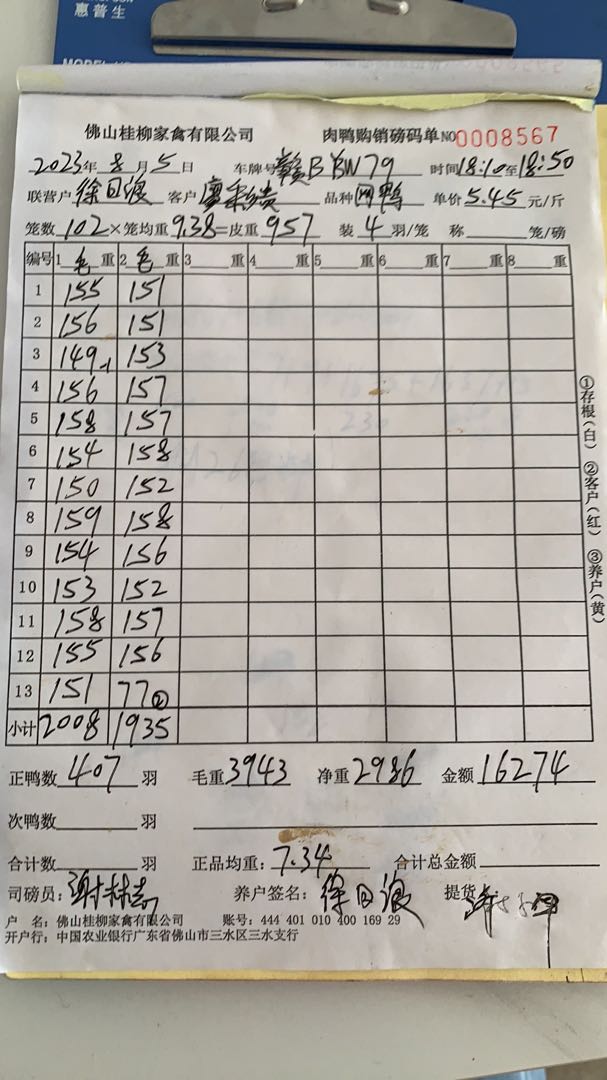 惠普生
佛山桂柳家禽有限公司 肉鸭购销磅码单 NO 0008567
2023年 8月 5日 车牌号 赣B BW79 时间 18:10至18:50
联营户 徐日浪 客户 廖 品种 肉鸭 单价 5.45 元/斤
笼数 102×笼均重 9.38=皮重 957 装 4 羽/笼 称 笼/磅
编号 1 毛 重 2 毛 重 3 重 4 重 5 重 6 重 7 重 8 重
1 155 151
2 156 151
3 149-1 153
4 156 157
5 158 157
6 154 158
7 150 152
8 159 158
9 154 156
10 153 152
11 158 157
12 155 156
13 151 77②
小计 2008 1935
①存根(白) ②客户(红) ③养户(黄)
正鸭数 407 羽 毛重 3943 净重 2986 金额 16274
次鸭数 羽
合计数 羽 正品均重: 7.34 合计总金额
司磅员: 谢林 养户签名: 徐日浪 提货
户 名: 佛山桂柳家禽有限公司 账号: 444 401 010 400 169 29
开户行: 中国农业银行广东省佛山市三水区三水支行